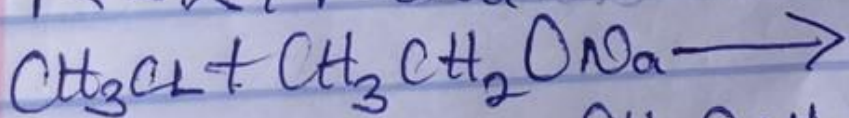 CH₃CL + CH₃CH₂ONa ⟶